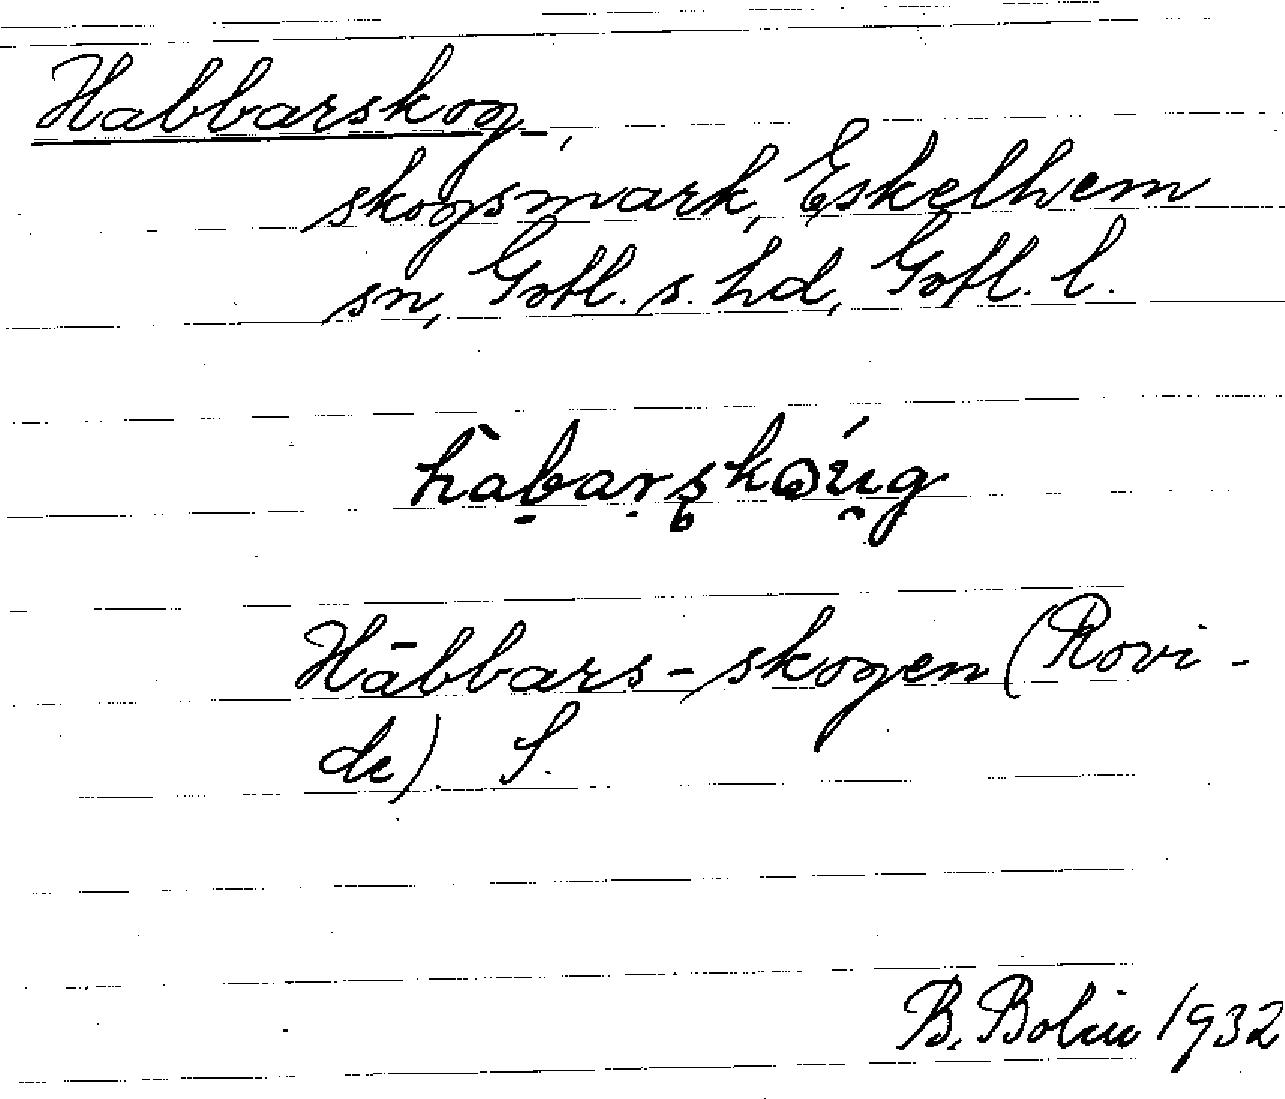 Habbarskog,
skogsmark, Eskelhem
sn, Gotl. s. hd, Gotl. l.
Häbbars-skogen (Rovi-
de) S.
B. Bolin 1932